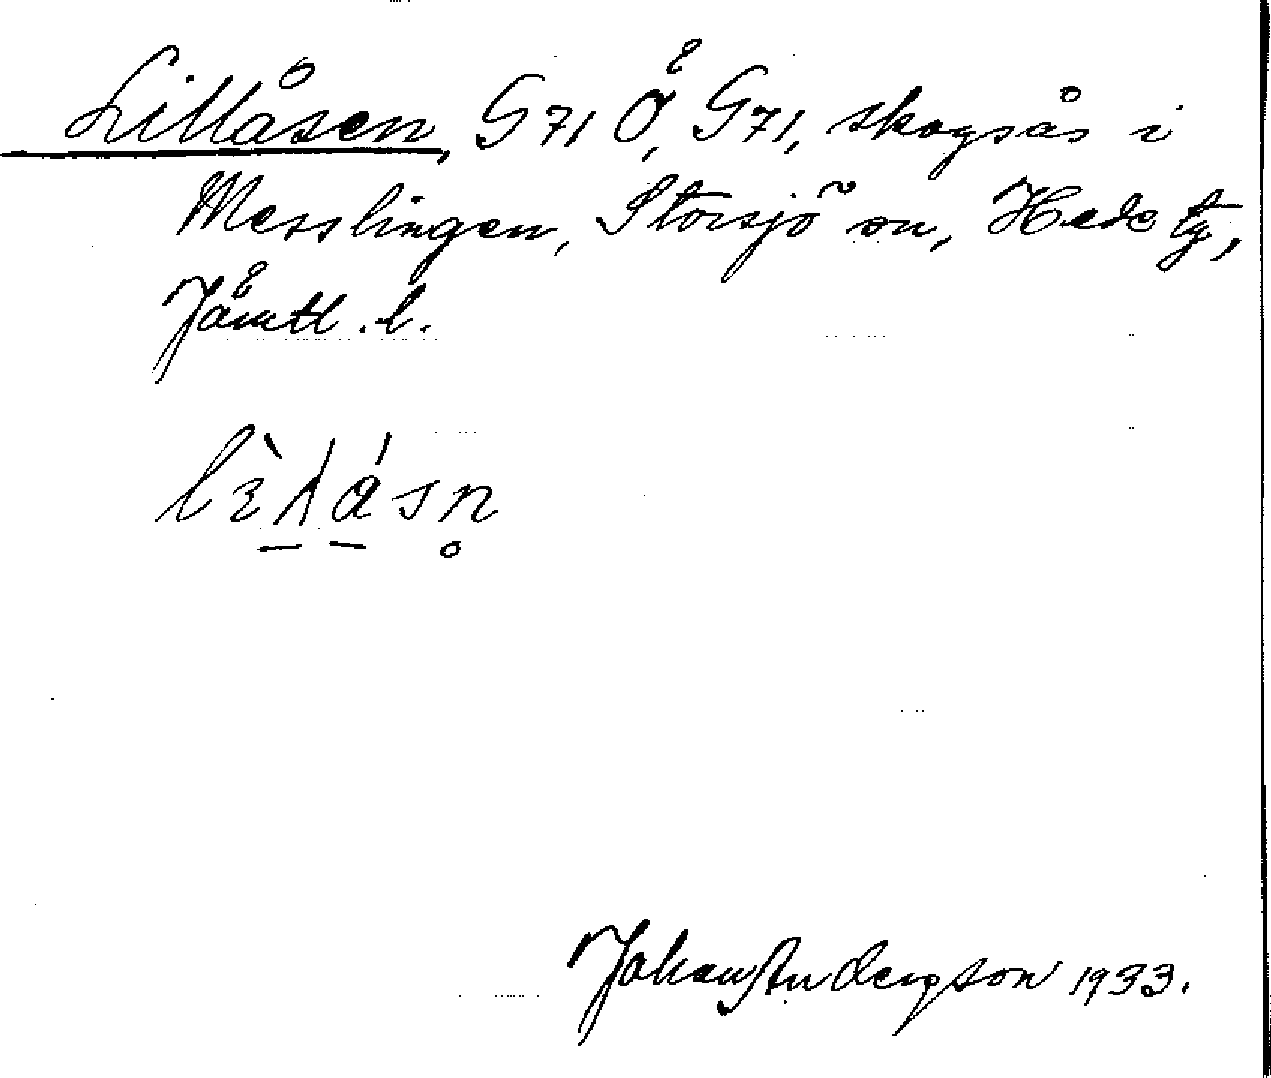 Lillåsen, G71 Å, G71, skogsås i
Messlingen, Storsjö sn, Hede tg,
Jämtl. l.
Johan Anderson 1933.